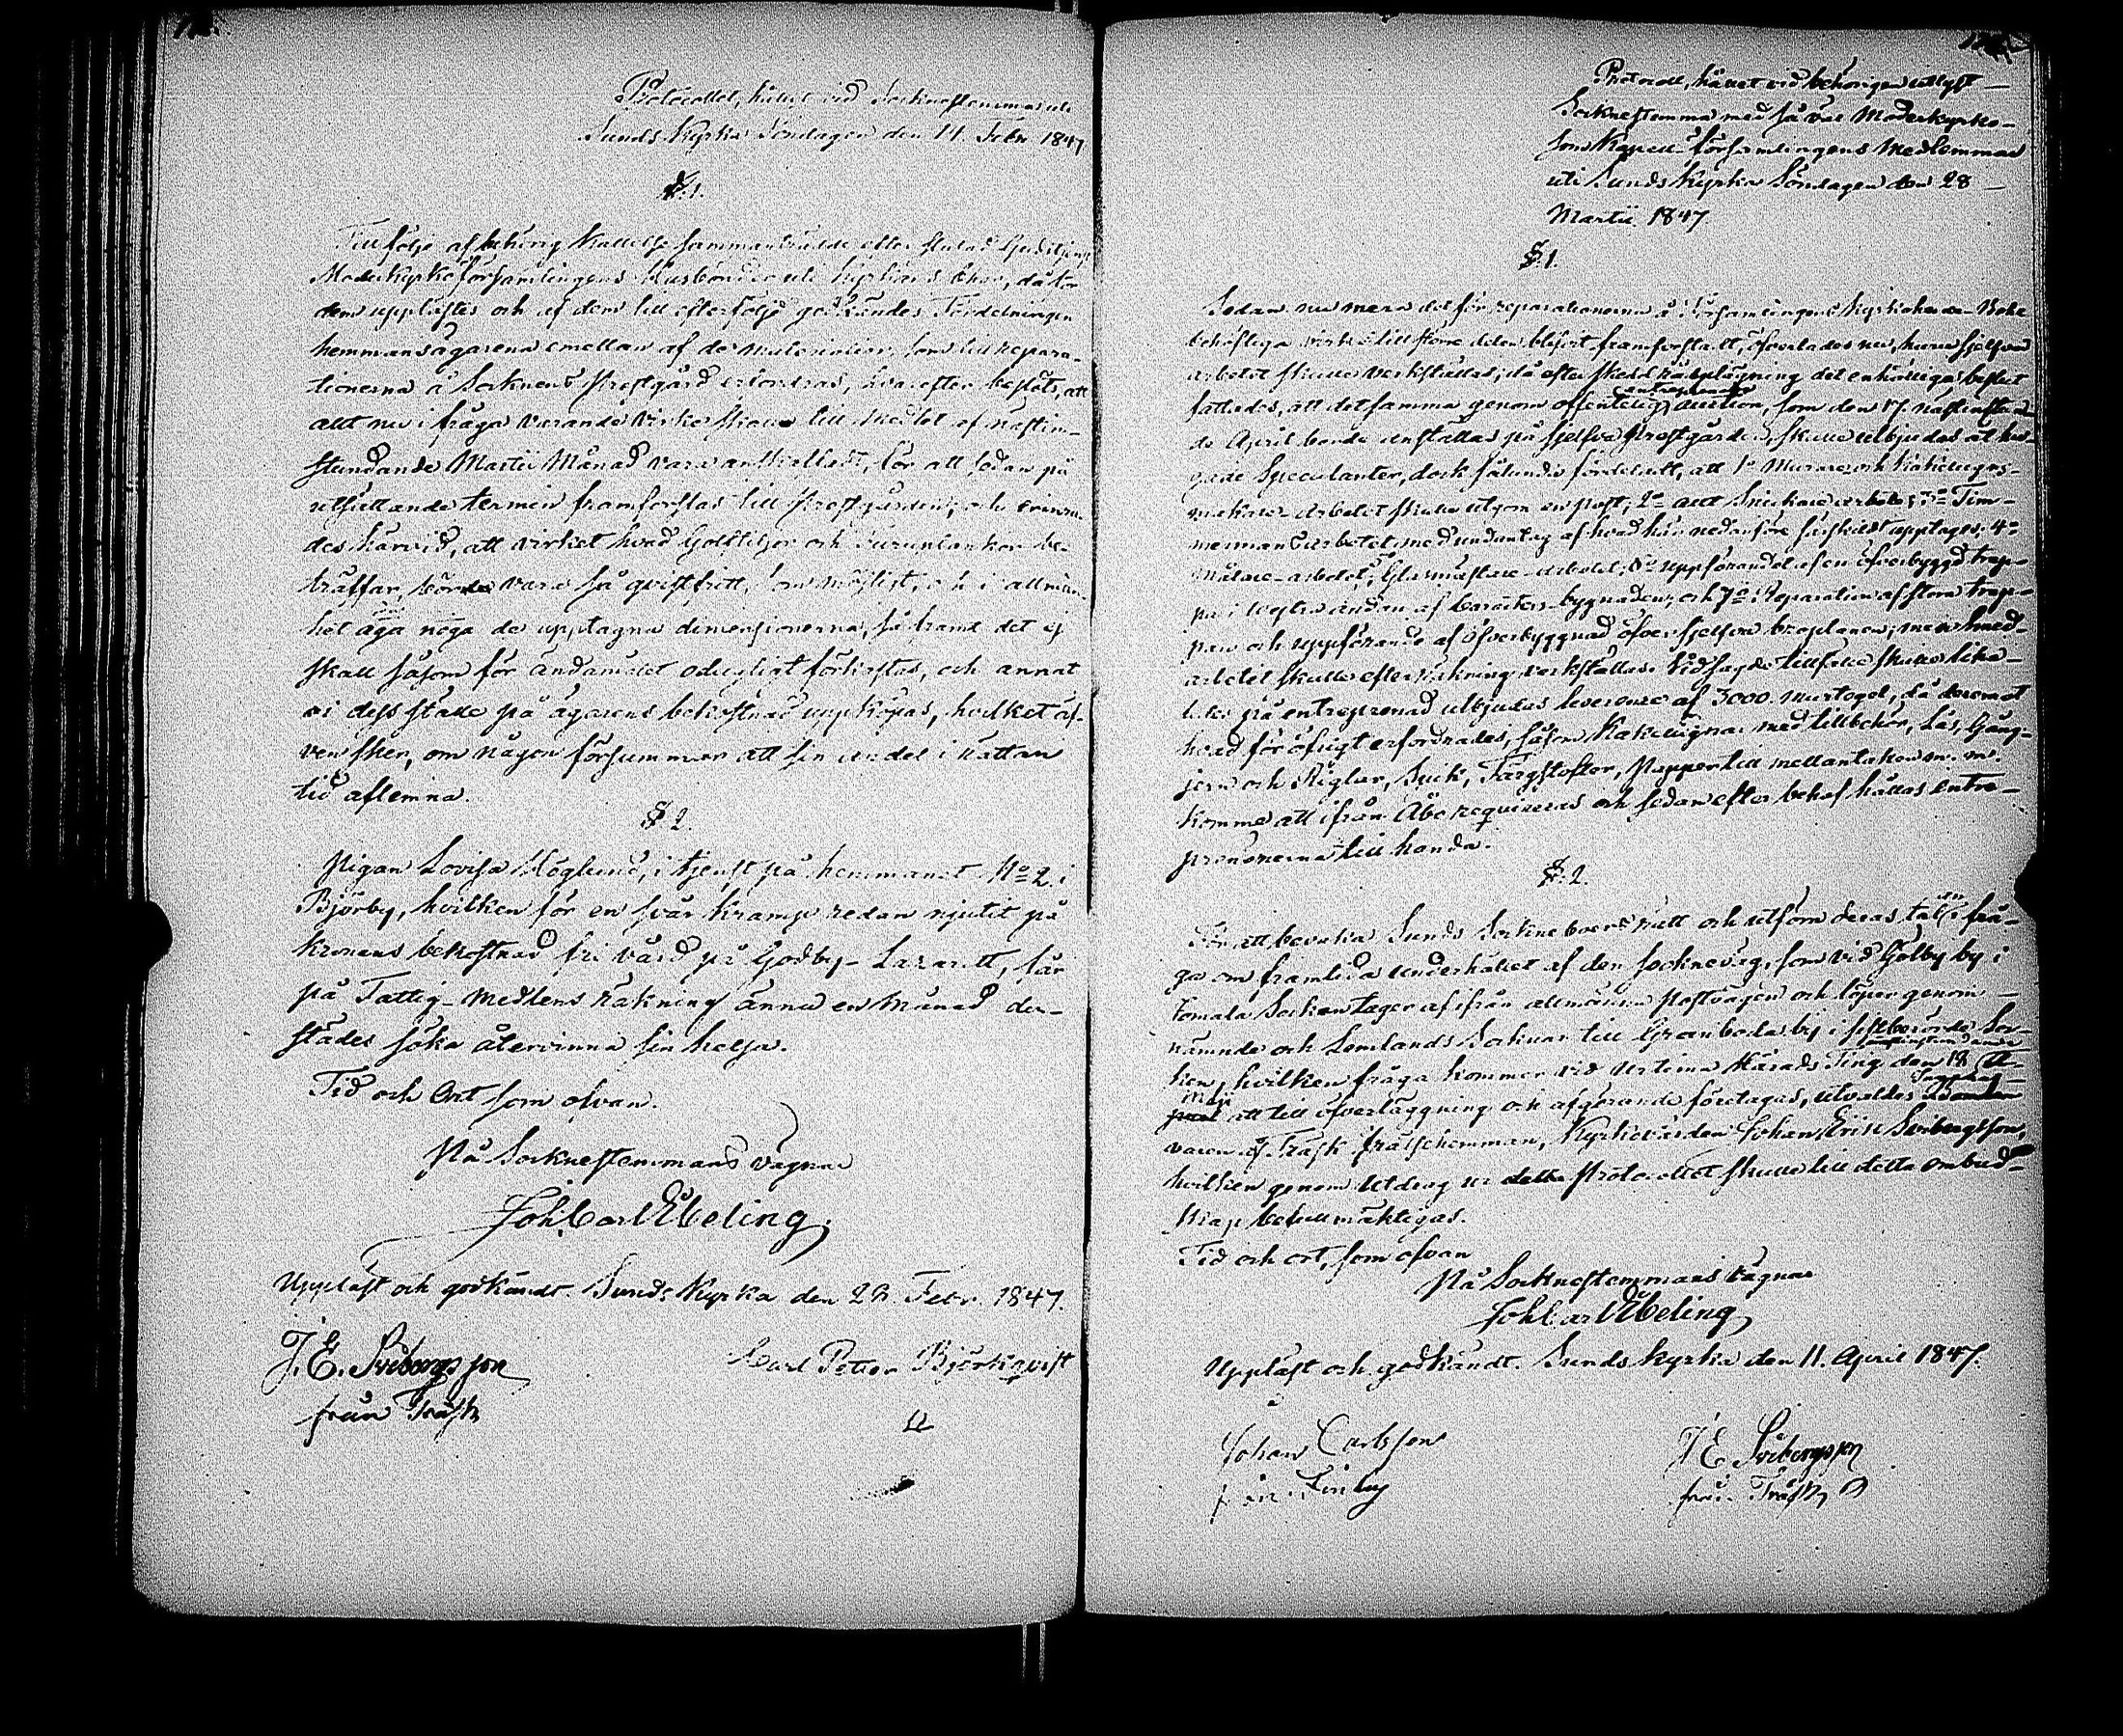 Protocollet, hållet vid Socknestemma uti
Sunds Kyrka Söndagen den 11. Febr 1847
§. 1.
Till följe af behörig kallelse sammanträdde efter slutad Gudstjenst
Moderkyrkoförsamlingens Husbönder uti Kyrkans Chor, då för
dem upplästes och af dem till efterföljd godkändes Fördelningen
hemmansägarena emellan af de materialier, som till repara-
tionerna å Socknens Prestgård erfordras, hvarefter beslöts, att
allt nu i fråga varande virke skall till medlet af nästin-
stundande Martii Månad vara anskaffadt, för att sedan på
utsättande termin framforslas till Prestgården; och erinra-
des härvid, att virket hvad Golftiljor och Furuplankor be-
träffar, borde vara så qvistfritt, som möjligt, och i allmän-
het äga noga de upptagna dimensionerna, så framt det ej
skall såsom för ändamålet odugligt förkastas, och annat
i dess ställe på ägarens bekostnad uppköpas, hvilket äf-
ven sker, om någon försummar att sin andel i rättan
tid aflemna.
§. 2.
Pigan Lovisa Höglund, i tjenst på hemmanet No 2. i
Björby, hvilken för en svår kramp redan njutit på
kronans bekostnad fri vård på Godby-Lazarett, får
på Fattig-Medlens räkning ännu en månad der-
städes söka återvinna sin helsa.
Tid och Ort som ofvan.
På Socknestemmans vägnar
Joh: Carl Ebeling.
Uppläst och godkändt. Sunds Kyrka den 28. Febr. 1847.
J. E. Svibergsson
från Träsk
Carl Petter Björkqvist
Protocoll, hållet vid behörigen utlyst
Socknestemma med så väl Moderkyrko-
som Kapell-församlingens Medlemmar
uti Sunds Kyrka Söndagen den 28
Martii 1847
§. 1.
Sedan nu mera det för reparationerna å Församlingens Kyrkoherde-Bohl
behöfliga virke till större delen blifvit framforsladt, öfverlades nu, huru sjelfva
arbetet skulle verkställas; då efter skedd rådplägning det enhälliga beslut
fattades, att detsamma genom offentelig entreprenad auction, som den 17. nästinstun-
de April borde anställas på sjelfva Prestgården, skulle utbjudas åt hu-
gade Speculanter, dock sålunda fördeladt, att 1o Murare och Kakelugns-
makare-arbetet skulle utgöra en post, 2o allt Snickare arbete; 3o Tim-
mermans arbetet med undantag af hvad här nedanföre särskildt upptages; 4o
Målare-arbetet; Glasmästare-arbetet; 6o uppförandet af en öfverbyggd trap-
pa i vestra ändan af Caracters-byggnaden; och 7o Reparation af stora trap-
pan och uppförande af öfverbyggnad öfver sjelfva broplanen; men smed-
arbetet skulle efter räkning verkställas. Vid sagde tillfälle skulle lika-
ledes på entreprenad utbjudas leverence af 3000 murtegel, då deremot
hvad för öfrigt erfordrades, såsom Kakelugnar med tillbehör, Lås, Gång-
jern och Riglar, Spik, Färgstofter, Papper till mellantaken m. m.
komme att ifrån Åbo requireras och sedan efter behof hållas entre-
prenörerna till handa.
§. 2.
För att bevaka Sunds Sockneboers rätt och utföra deras talan i frå-
ga om framtida underhållet af den sockneväg, som vid Gölby by i
Jomala Socken tager af ifrån allmänna Postvägen och löper genom
nämnde och Lemlands Socknar till Granboda by i sistberörde Soc-
ken, hvilken fråga kommer vid Urtima Härads Ting den 18
Maji att till öfverläggning och afgörande företagas, utvaldes Inge-
varen af Träsk frälsehemman, Kyrkovärden Johan Erik Svibergsson,
hvilken genom Utdrag ur detta Protocollet skulle till detta ombud-
skap befullmäktigas.
Tid och ort, som ofvan
På Socknestemmans vägnar
Joh: Carl Ebeling
Uppläst och godkändt. Sunds kyrka den 11. April 1847.
Johan Carlsson
från Finby
J E Svibergsson
från Träsk